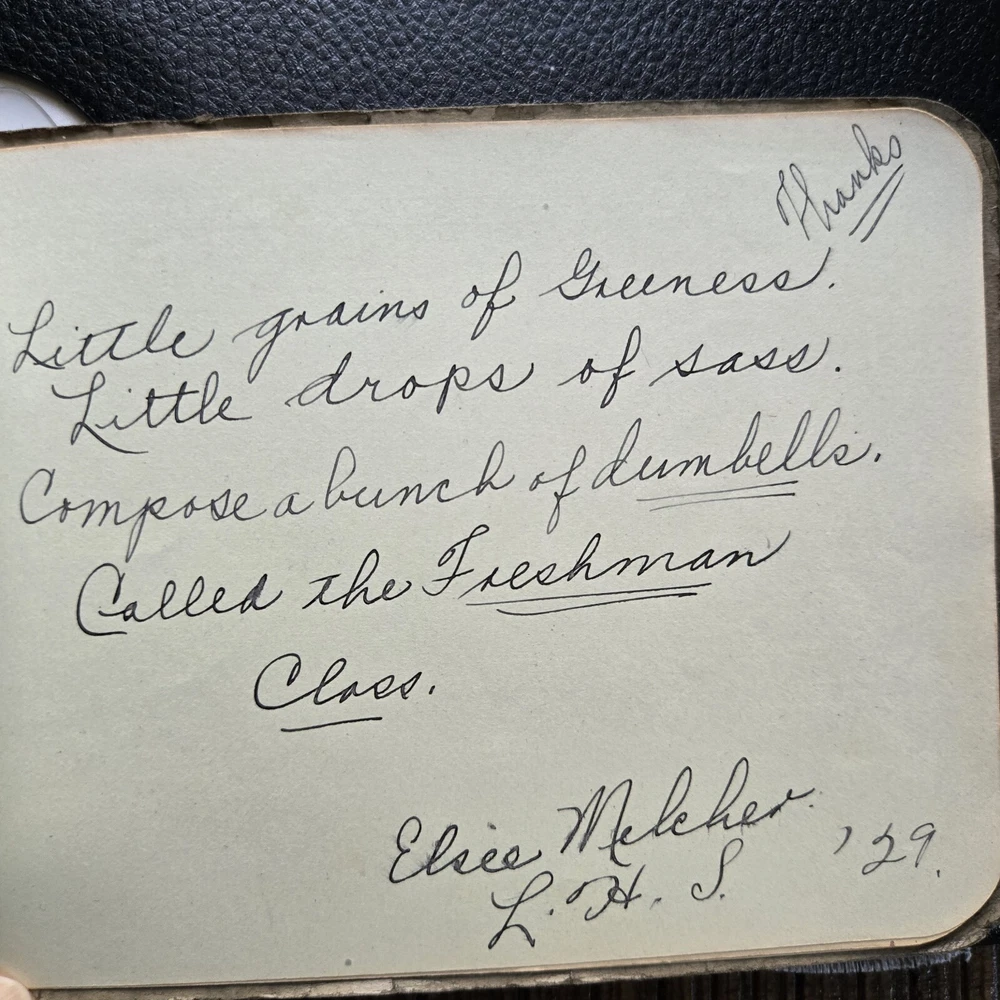 Thanks
Little grains of Greeness.
Little drops of sass.
Compose a bunch of dumbells.
Called the Freshman
Class.
Elsie Melcher.
L. H. S. '29.